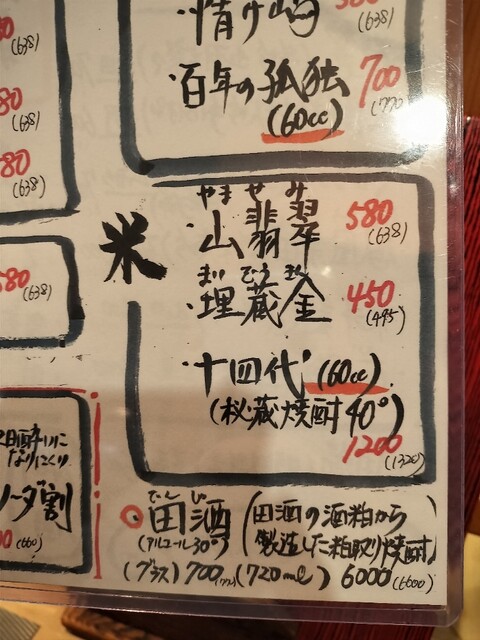 ・情け嶋
(638)
・百年の孤独
700
(770)
(60cc)
米
やませみ
・山翡翠
580
(638)
まいぞうきん
・埋蔵金
450
(495)
・十四代(60cc)
(秘蔵焼酎40°)
1200
(1320)
でんしゅ
田酒
(アルコール30°)
(田酒の酒粕から
製造した粕取り焼酎)
(グラス)700(770)(720ml)6000(6600)
(638)
80
(638)
80
(638)
580
(638)
なりにくい
ソーダ割
(660)